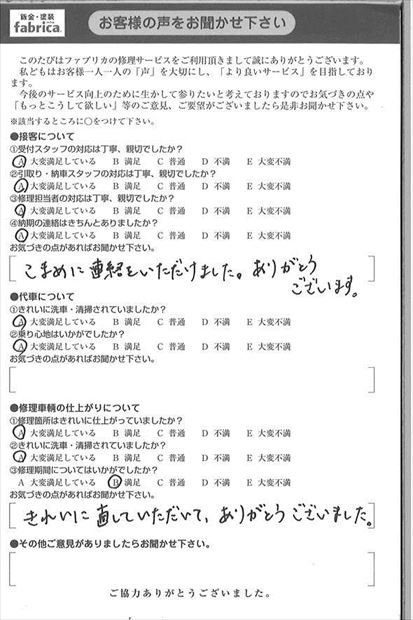 鈑金・塗装
fabrica.
お客様の声をお聞かせ下さい
このたびはファブリカの修理サービスをご利用頂きまして誠にありがとうございます。
私どもはお客様一人一人の「声」を大切にし、「より良いサービス」を目指しており
ます。
今後のサービス向上のために生かして参りたいと考えておりますのでお気づきの点や
「もっとこうして欲しい」等のご意見、ご要望がございましたら是非お聞かせ下さい。
※該当するところに〇をつけて下さい。
●接客について
①受付スタッフの対応は丁寧、親切でしたか？
A 大変満足している B 満足 C 普通 D 不満 E 大変不満
②引取り・納車スタッフの対応は丁寧、親切でしたか？
A 大変満足している B 満足 C 普通 D 不満 E 大変不満
③修理担当者の対応は丁寧、親切でしたか？
A 大変満足している B 満足 C 普通 D 不満 E 大変不満
④納期の連絡はきちんとありましたか？
A 大変満足している B 満足 C 普通 D 不満 E 大変不満
お気づきの点があればお聞かせ下さい。
こまめに連絡をいただけました。ありがとう
ございます。
●代車について
①きれいに洗車・清掃されていましたか？
A 大変満足している B 満足 C 普通 D 不満 E 大変不満
②乗り心地はいかがでしたか？
A 大変満足している B 満足 C 普通 D 不満 E 大変不満
お気づきの点があればお聞かせ下さい。
●修理車輌の仕上がりについて
①修理箇所はきれいに仕上がっていましたか？
A 大変満足している B 満足 C 普通 D 不満 E 大変不満
②きれいに洗車・清掃されていましたか？
A 大変満足している B 満足 C 普通 D 不満 E 大変不満
③修理期間についてはいかがでしたか？
A 大変満足している B 満足 C 普通 D 不満 E 大変不満
お気づきの点があればお聞かせ下さい。
きれいに直していただいて、ありがとうございました。
●その他ご意見がありましたらお聞かせ下さい。
ご協力ありがとうございました。